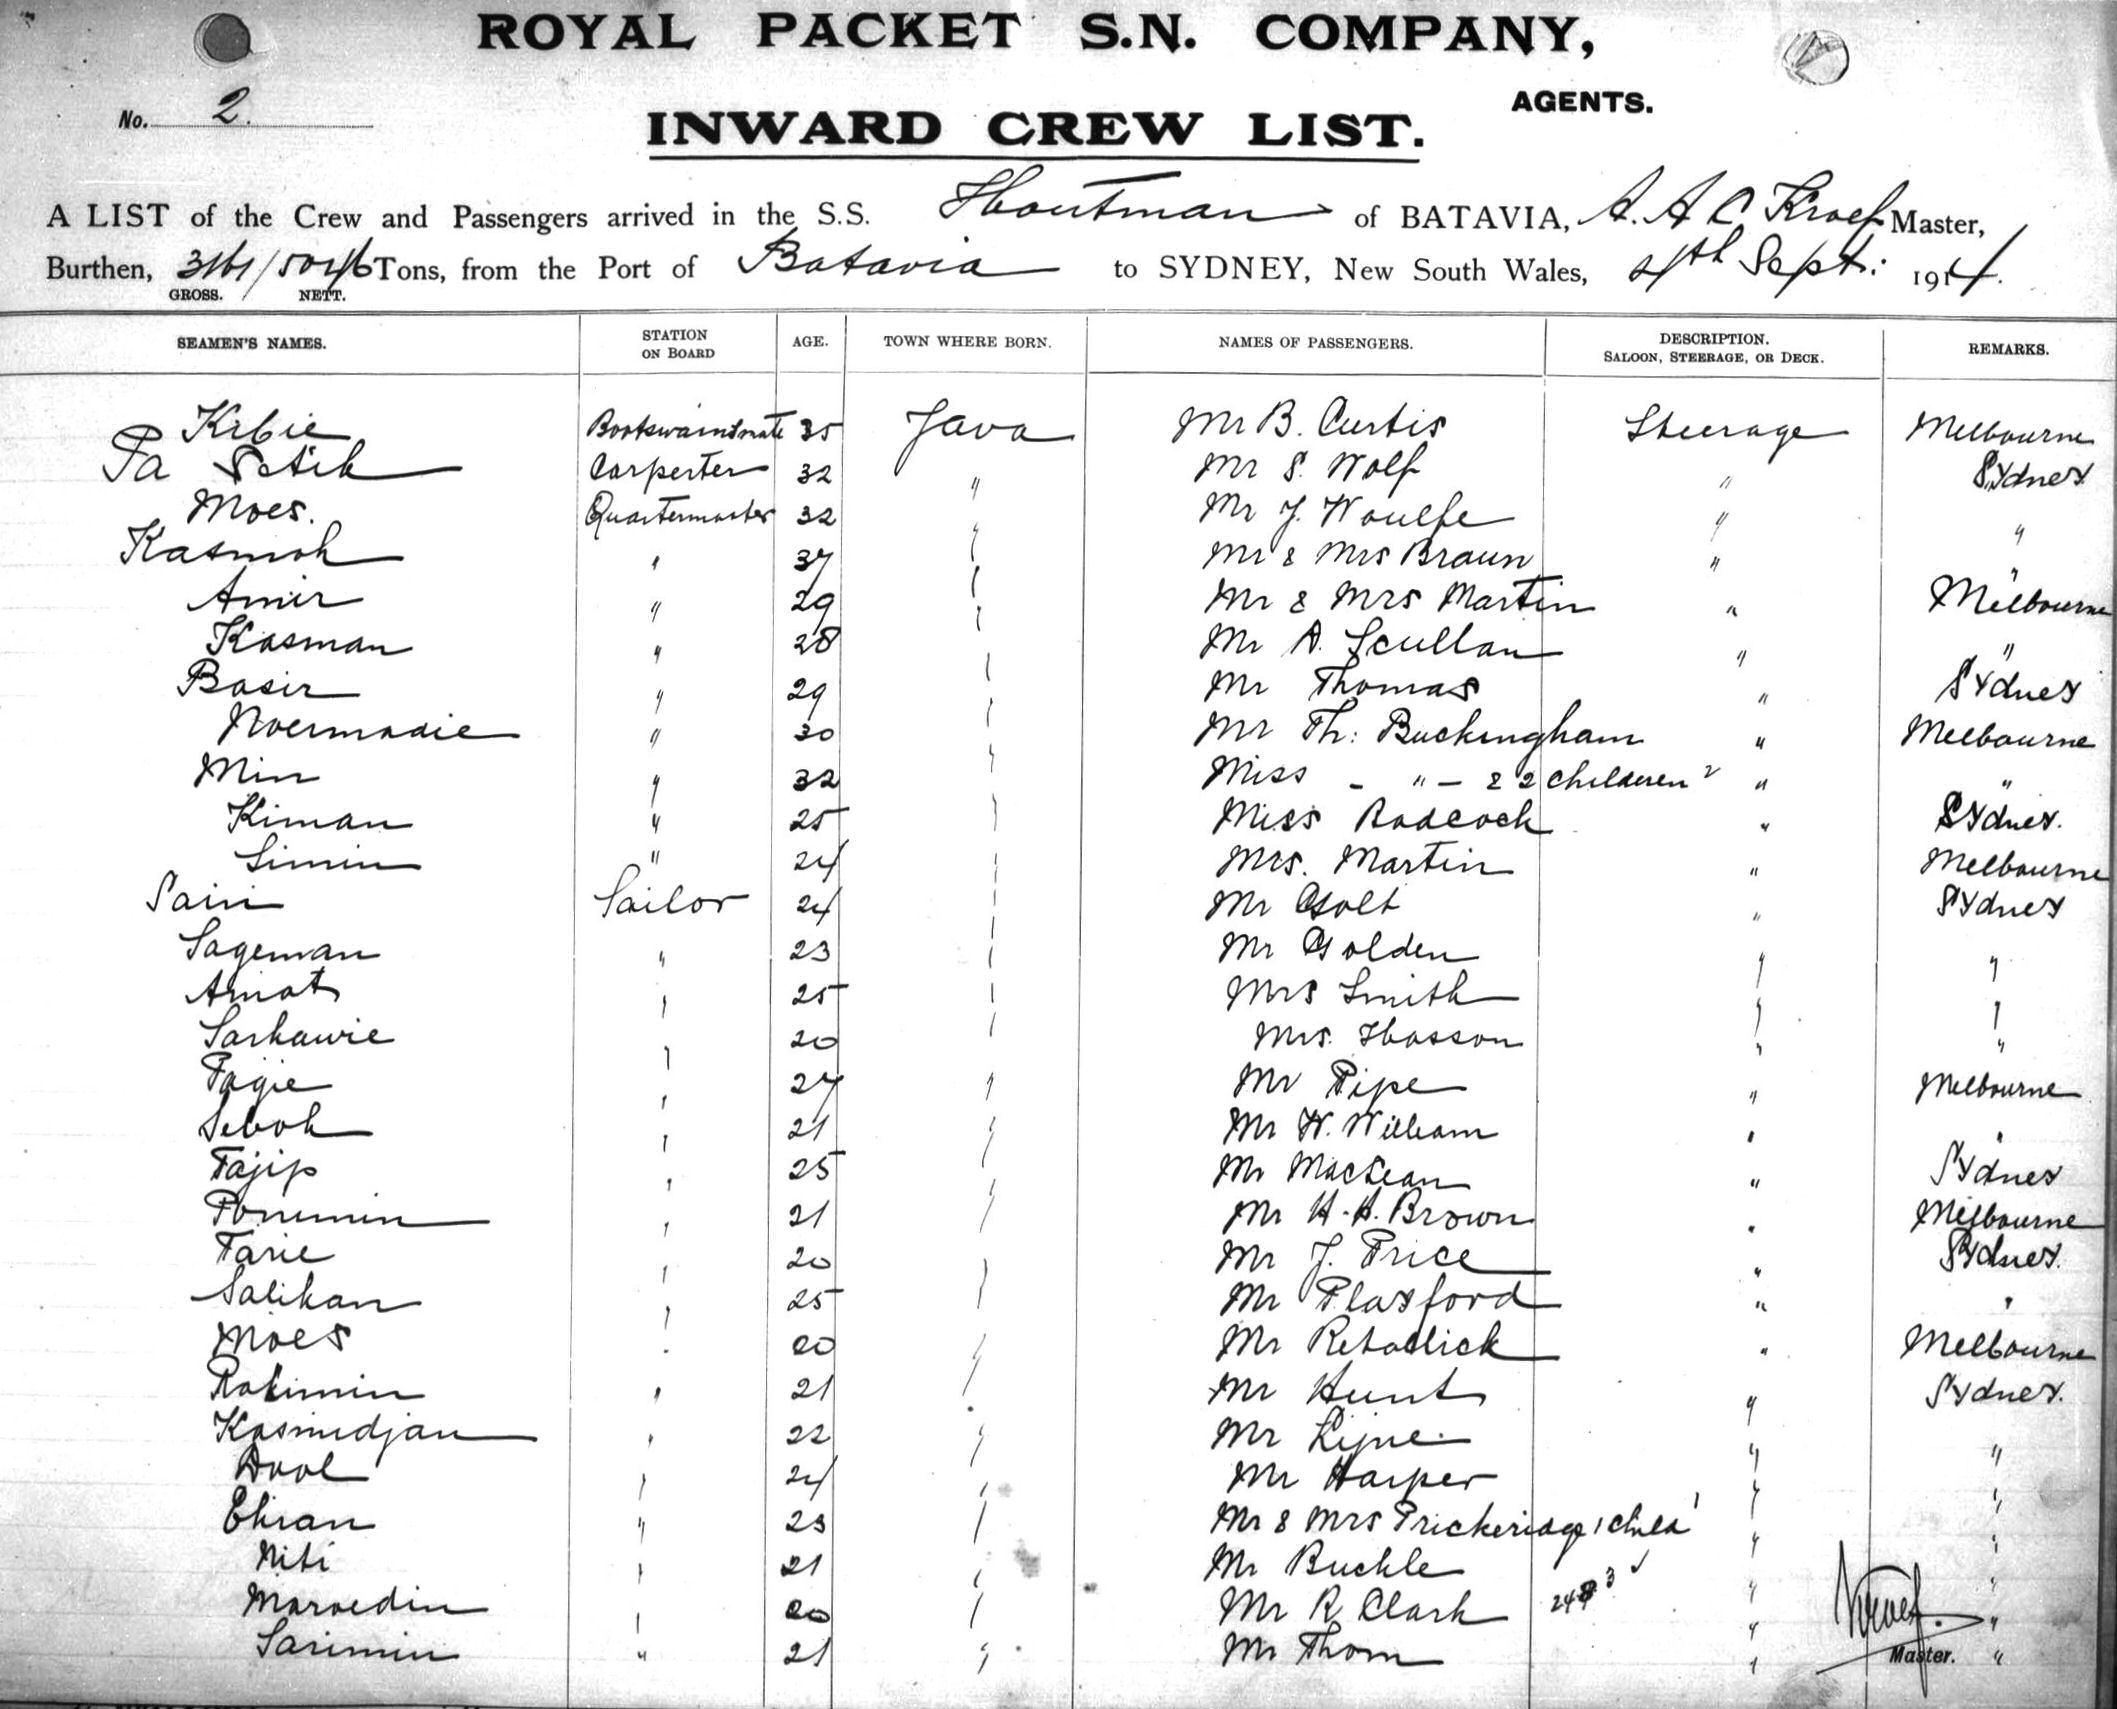 ROYAL PACKET S.N. COMPANY,
AGENTS.
No. 2.
INWARD CREW LIST.
A LIST of the Crew and Passengers arrived in the S.S. Houtman of BATAVIA, A. A C Kroef Master,
Burthen, Tons, from the Port of Batavia to SYDNEY, New South Wales, 4th Sept: 1914.
GROSS. NETT.
SEAMEN'S NAMES. STATION ON BOARD AGE. TOWN WHERE BORN. NAMES OF PASSENGERS. DESCRIPTION. SALOON, STEERAGE, OR DECK. REMARKS.
Krbie Bootswainsmate 35 Java Mr B. Curtis Steerage Melbourne
Pa Setik Carpenter 32 " Mr S. Wolf " Sydney
Moes. Quartermaster 32 " Mr J. Woulfe " "
Kasmoh " 37 " Mr & Mrs Braun " "
Amir " 29 " Mr & Mrs Martin " Melbourne
Kasman " 28 Mr A. Scullan " "
Basir " 29 " Mr Thomas " Sydney
Noermadie " 30 " Mr Th: Buckingham " Melbourne
Min " 32 " Miss - " - & 2 children 2 " "
Kiman " 25 " Miss Badcock " Sydney.
Simin " 24 " Mrs. Martin " Melbourne
Sain Sailor 24 " Mr Holt " Sydney
Sageman " 23 " Mr Golden " "
Amat " 25 " Mrs Smith " "
Sarkawie " 20 " Mrs. Hasson " "
Pagie " 27 " Mr Pipe " Melbourne
Seboh " 21 " Mr W. William " "
Tajip " 25 " Mr MacLean " Sydney
Ponimin " 21 " Mr H. H. Brown " Melbourne
Tarie " 20 Mr J. Price " Sydney.
Salikan " 25 " Mr Playford " "
Moes " 20 " Mr Retallick " Melbourne
Rakimin " 21 " Mr Hunt " Sydney.
Kasmidjan " 22 " Mr Lijne. " "
Dool " 24 " Mr Harper " "
Ekran " 23 " Mr & Mrs Prickeridge 1 child 1 " "
Niti " 21 " Mr Buckle " "
Maroedin " 20 " Mr R Clark " "
Sarimin " 21 " Mr Thom " "
Kroef.
Master.